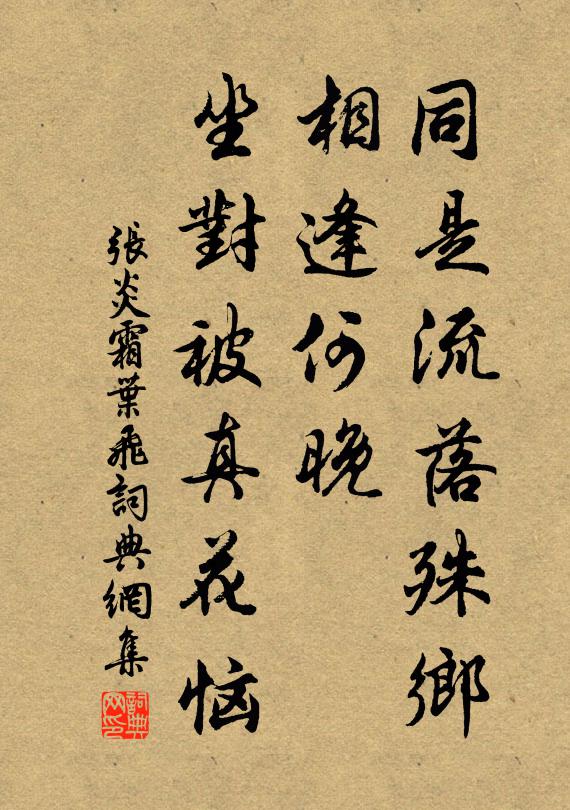 同是流落殊鄉
相逢何晚
坐對被真花恼
張炎霜葉飛詞典網集
詞典网印